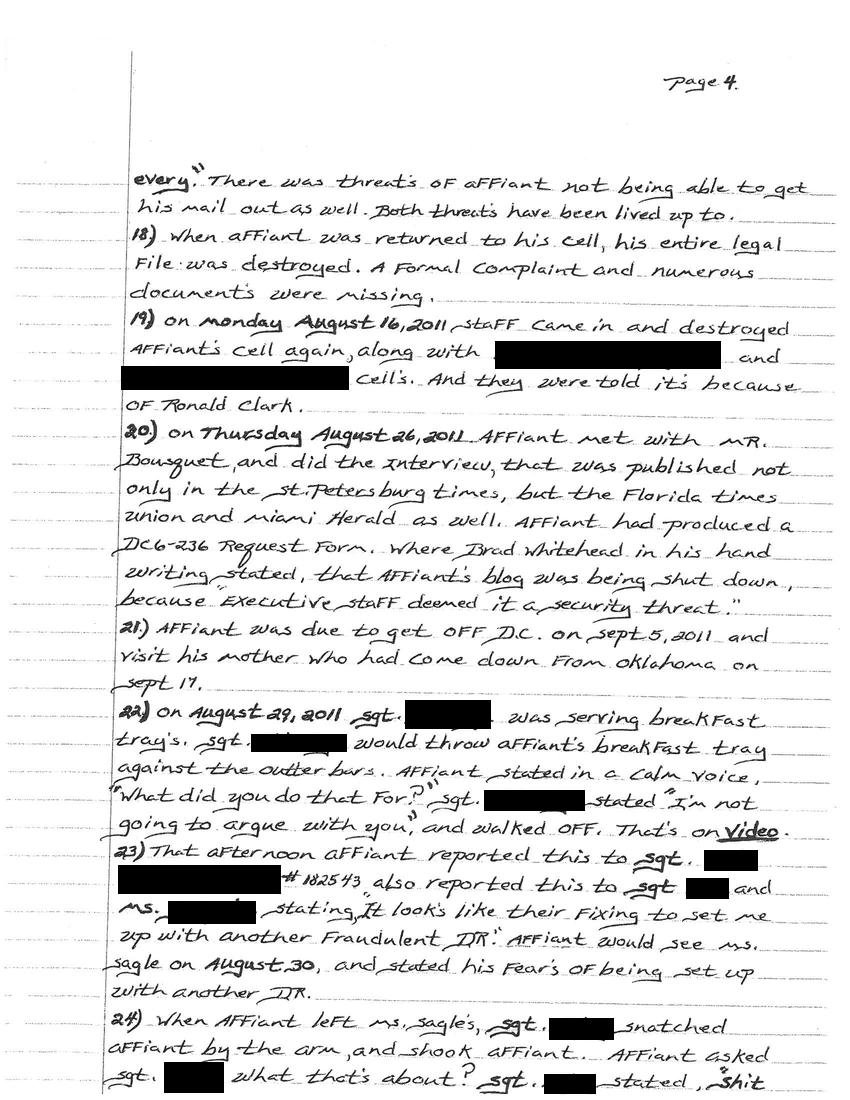 page 4.
every." There was threat's of affiant not being able to get
his mail out as well. Both threat's have been lived up to.
18.) When affiant was returned to his cell, his entire legal
File was destroyed. A Formal Complaint and numerous
document's were missing.
19.) on monday August 16, 2011 staff came in and destroyed
Affiant's cell again, along with and
cell's. And they were told it's because
of Ronald Clark.
20.) on Thursday August 26, 2011 Affiant met with MR.
Bousquet, and did the Interview, that was published not
only in the St. Petersburg times, but the Florida times
union and miami Herald as well. Affiant had produced a
DC6-236 Request Form. Where Brad Whitehead in his hand
writing stated, that Affiant's blog was being shut down,
because "Executive staff deemed it a security threat."
21.) Affiant was due to get OFF D.C. on sept 5, 2011 and
visit his mother who had come down from oklahoma on
sept 17.
22.) on August 29, 2011 sgt. was serving breakfast
tray's. sgt. would throw affiant's breakfast tray
against the outter bars. Affiant stated in a calm voice,
"What did you do that For?" sgt. stated "I'm not
going to argue with you", and walked OFF. That's on Video.
23.) That afternoon affiant reported this to sgt.
# 182543 also reported this to sgt and
ms. stating, "It look's like their Fixing to set me
up with another Fraudulent DR." Affiant would see ms.
sagle on August 30, and stated his Fear's of being set up
with another DR.
24.) When Affiant left ms. sagle's, sgt. snatched
affiant by the arm, and shook affiant. Affiant asked
sgt. what that's about? sgt. stated, "shit